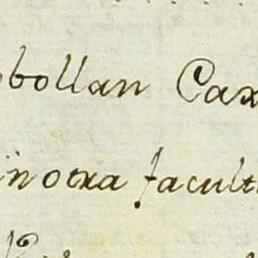 bollan Cax
ïn otra facult